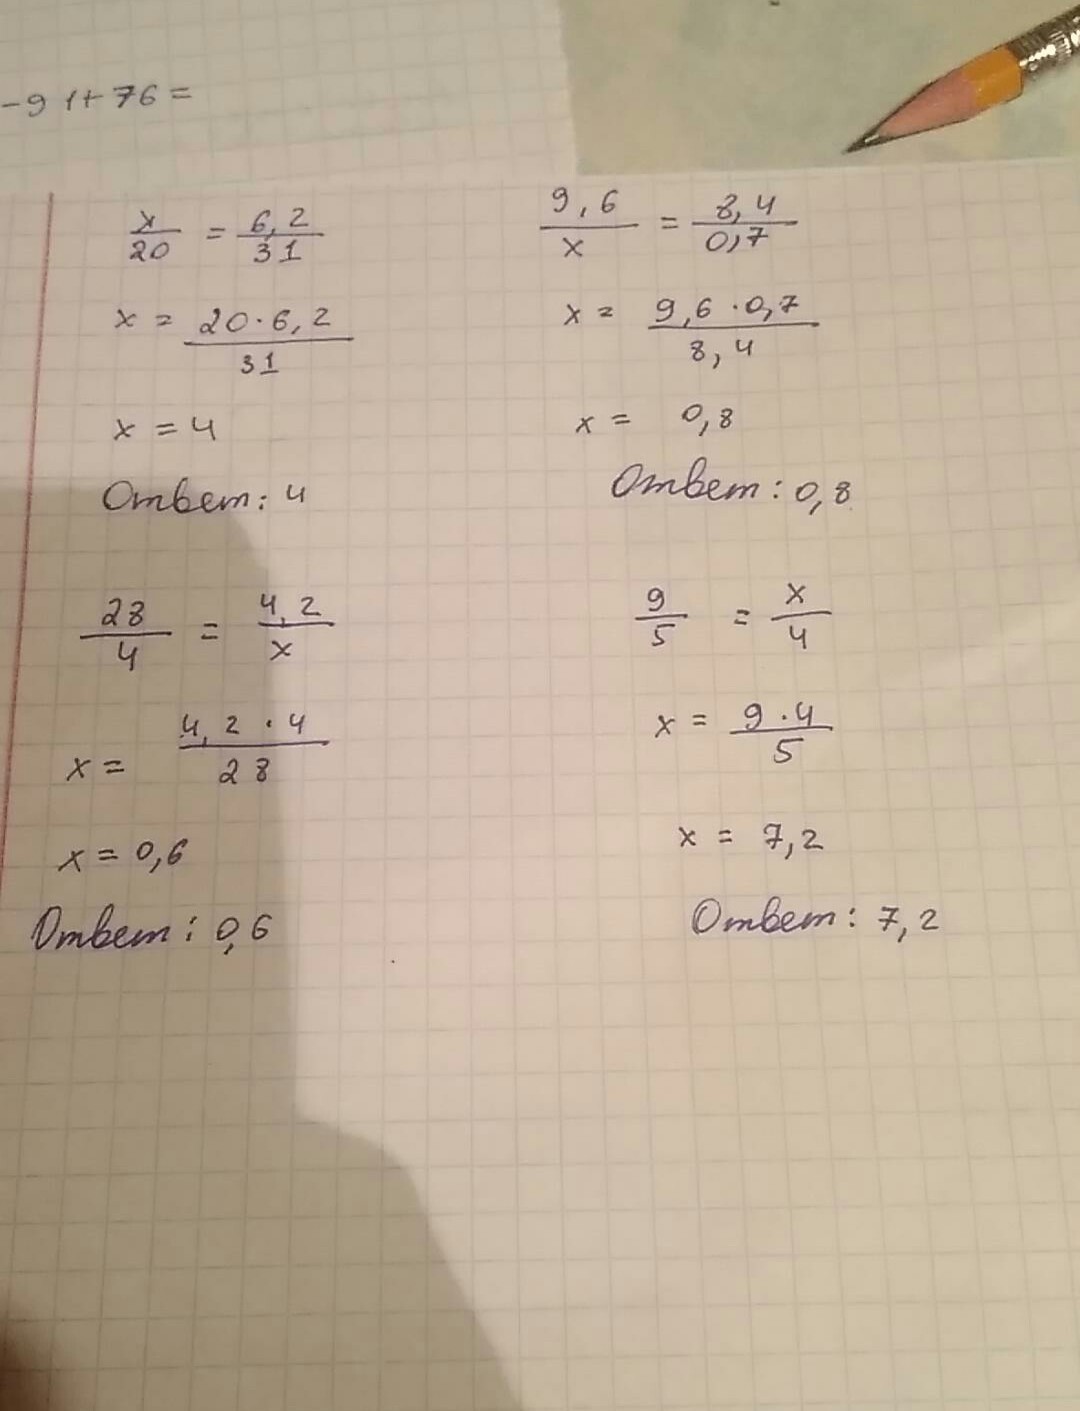 -91+76=
x/20 = 6,2/31
x = 20·6,2/31
x = 4
Ответ: 4
9,6/x = 8,4/0,7
x = 9,6·0,7/8,4
x = 0,8
Ответ: 0,8
28/4 = 4,2/x
x = 4,2·4/28
x = 0,6
Ответ: 0,6
9/5 = x/4
x = 9·4/5
x = 7,2
Ответ: 7,2